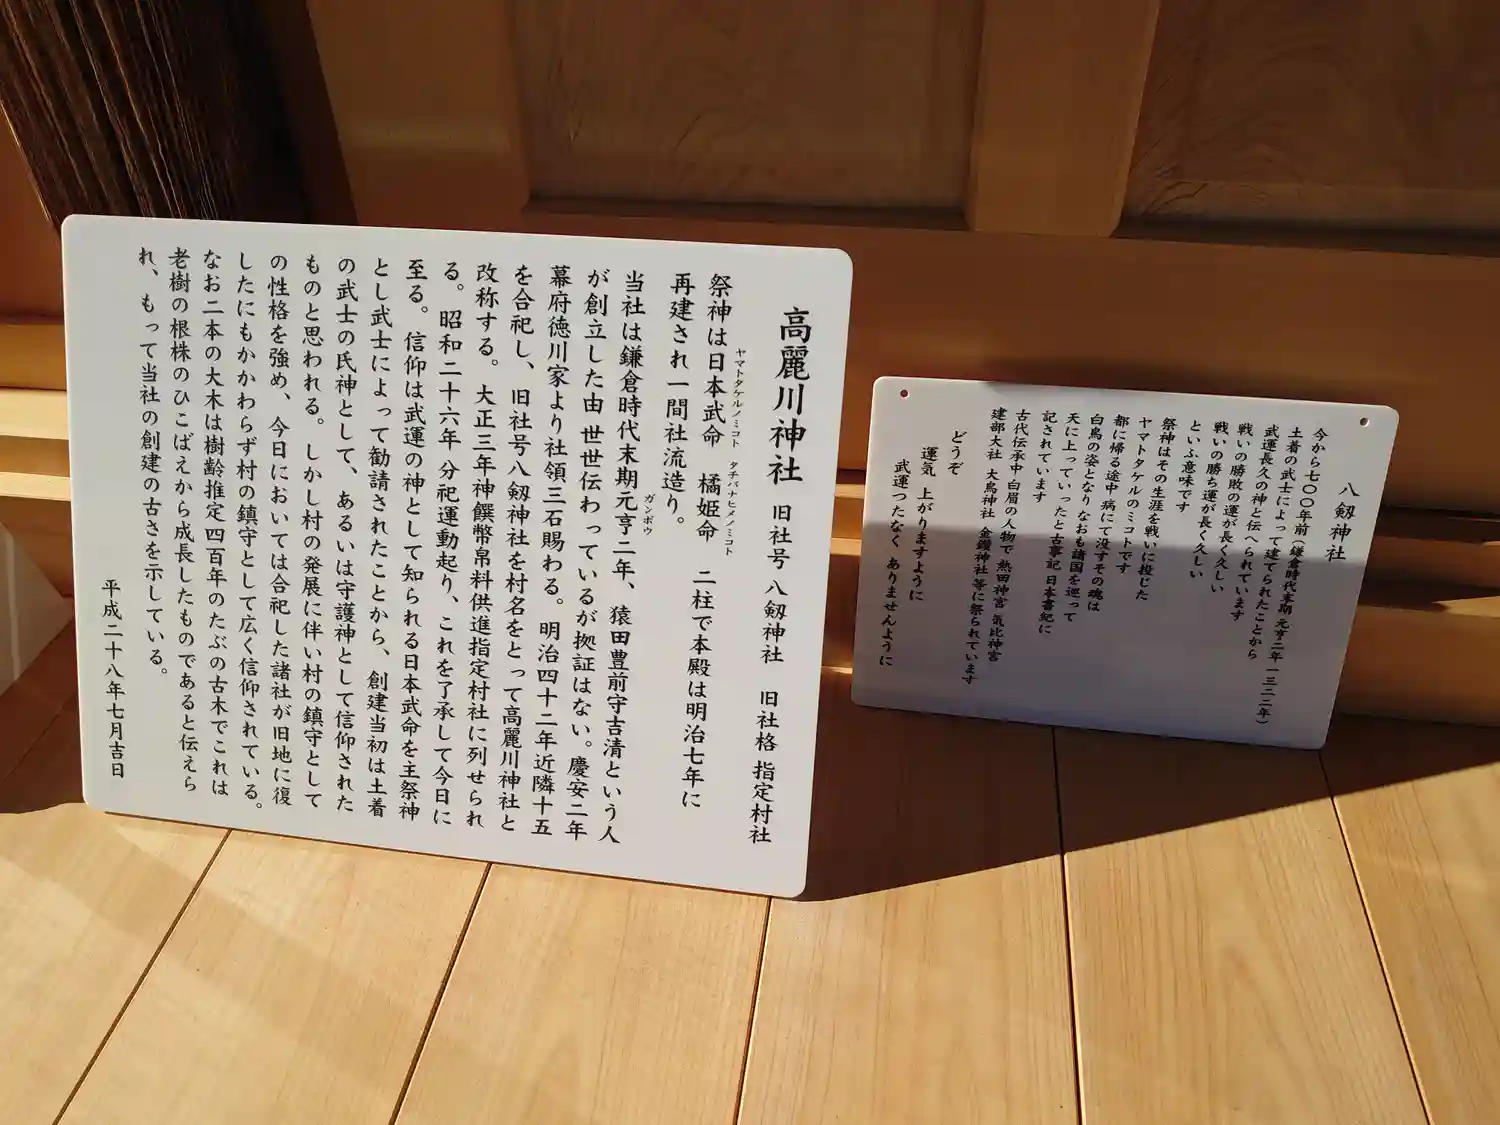 高麗川神社 旧社号 八剱神社 旧社格 指定村社
祭神は日本武命 橘姫命 二柱で本殿は明治七年に
ヤマトタケルノミコト タチバナヒメノミコト
再建され一間社流造り。
当社は鎌倉時代末期元亨二年、猿田豊前守吉清という人
ガンボウ
が創立した由 世世伝わっているが拠証はない。慶安二年
幕府徳川家より社領三石賜わる。明治四十二年近隣十五
を合祀し、旧社号八剱神社を村名をとって高麗川神社と
改称する。大正三年神饌幣帛料供進指定村社に列せられ
る。昭和二十六年 分祀運動起り、これを了承して今日に
至る。信仰は武運の神として知られる日本武命を主祭神
とし武士によって勧請されたことから、創建当初は土着
の武士の氏神として、あるいは守護神として信仰された
ものと思われる。しかし村の発展に伴い村の鎮守として
の性格を強め、今日においては合祀した諸社が旧地に復
したにもかかわらず村の鎮守として広く信仰されている。
なお二本の大木は樹齢推定四百年のたぶの古木でこれは
老樹の根株のひこばえから成長したものであると伝えら
れ、もって当社の創建の古さを示している。
平成二十八年七月吉日
八剱神社
今から七〇〇年前(鎌倉時代末期 元亨二年 一三二二年)
土着の武士によって建てられたことから
武運長久の神と伝へられています
戦いの勝敗の運が長く久しい
戦いの勝ち運が長く久しい
といふ意味です
祭神はその生涯を戦いに投じた
ヤマトタケルのミコトです
都に帰る途中 病にて没すその魂は
白鳥の姿となりなおも諸国を巡って
天に上っていったと古事記 日本書紀に
記されています
古代伝承中 白眉の人物で 熱田神宮 気比神宮
建部大社 大鳥神社 金鑚神社 等に祭られています
どうぞ
運気 上がりますように
武運つたなく ありませんように